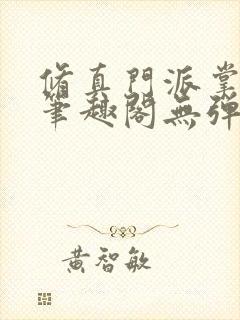 脩真門派掌
筆趣閣無彈
黃智敏